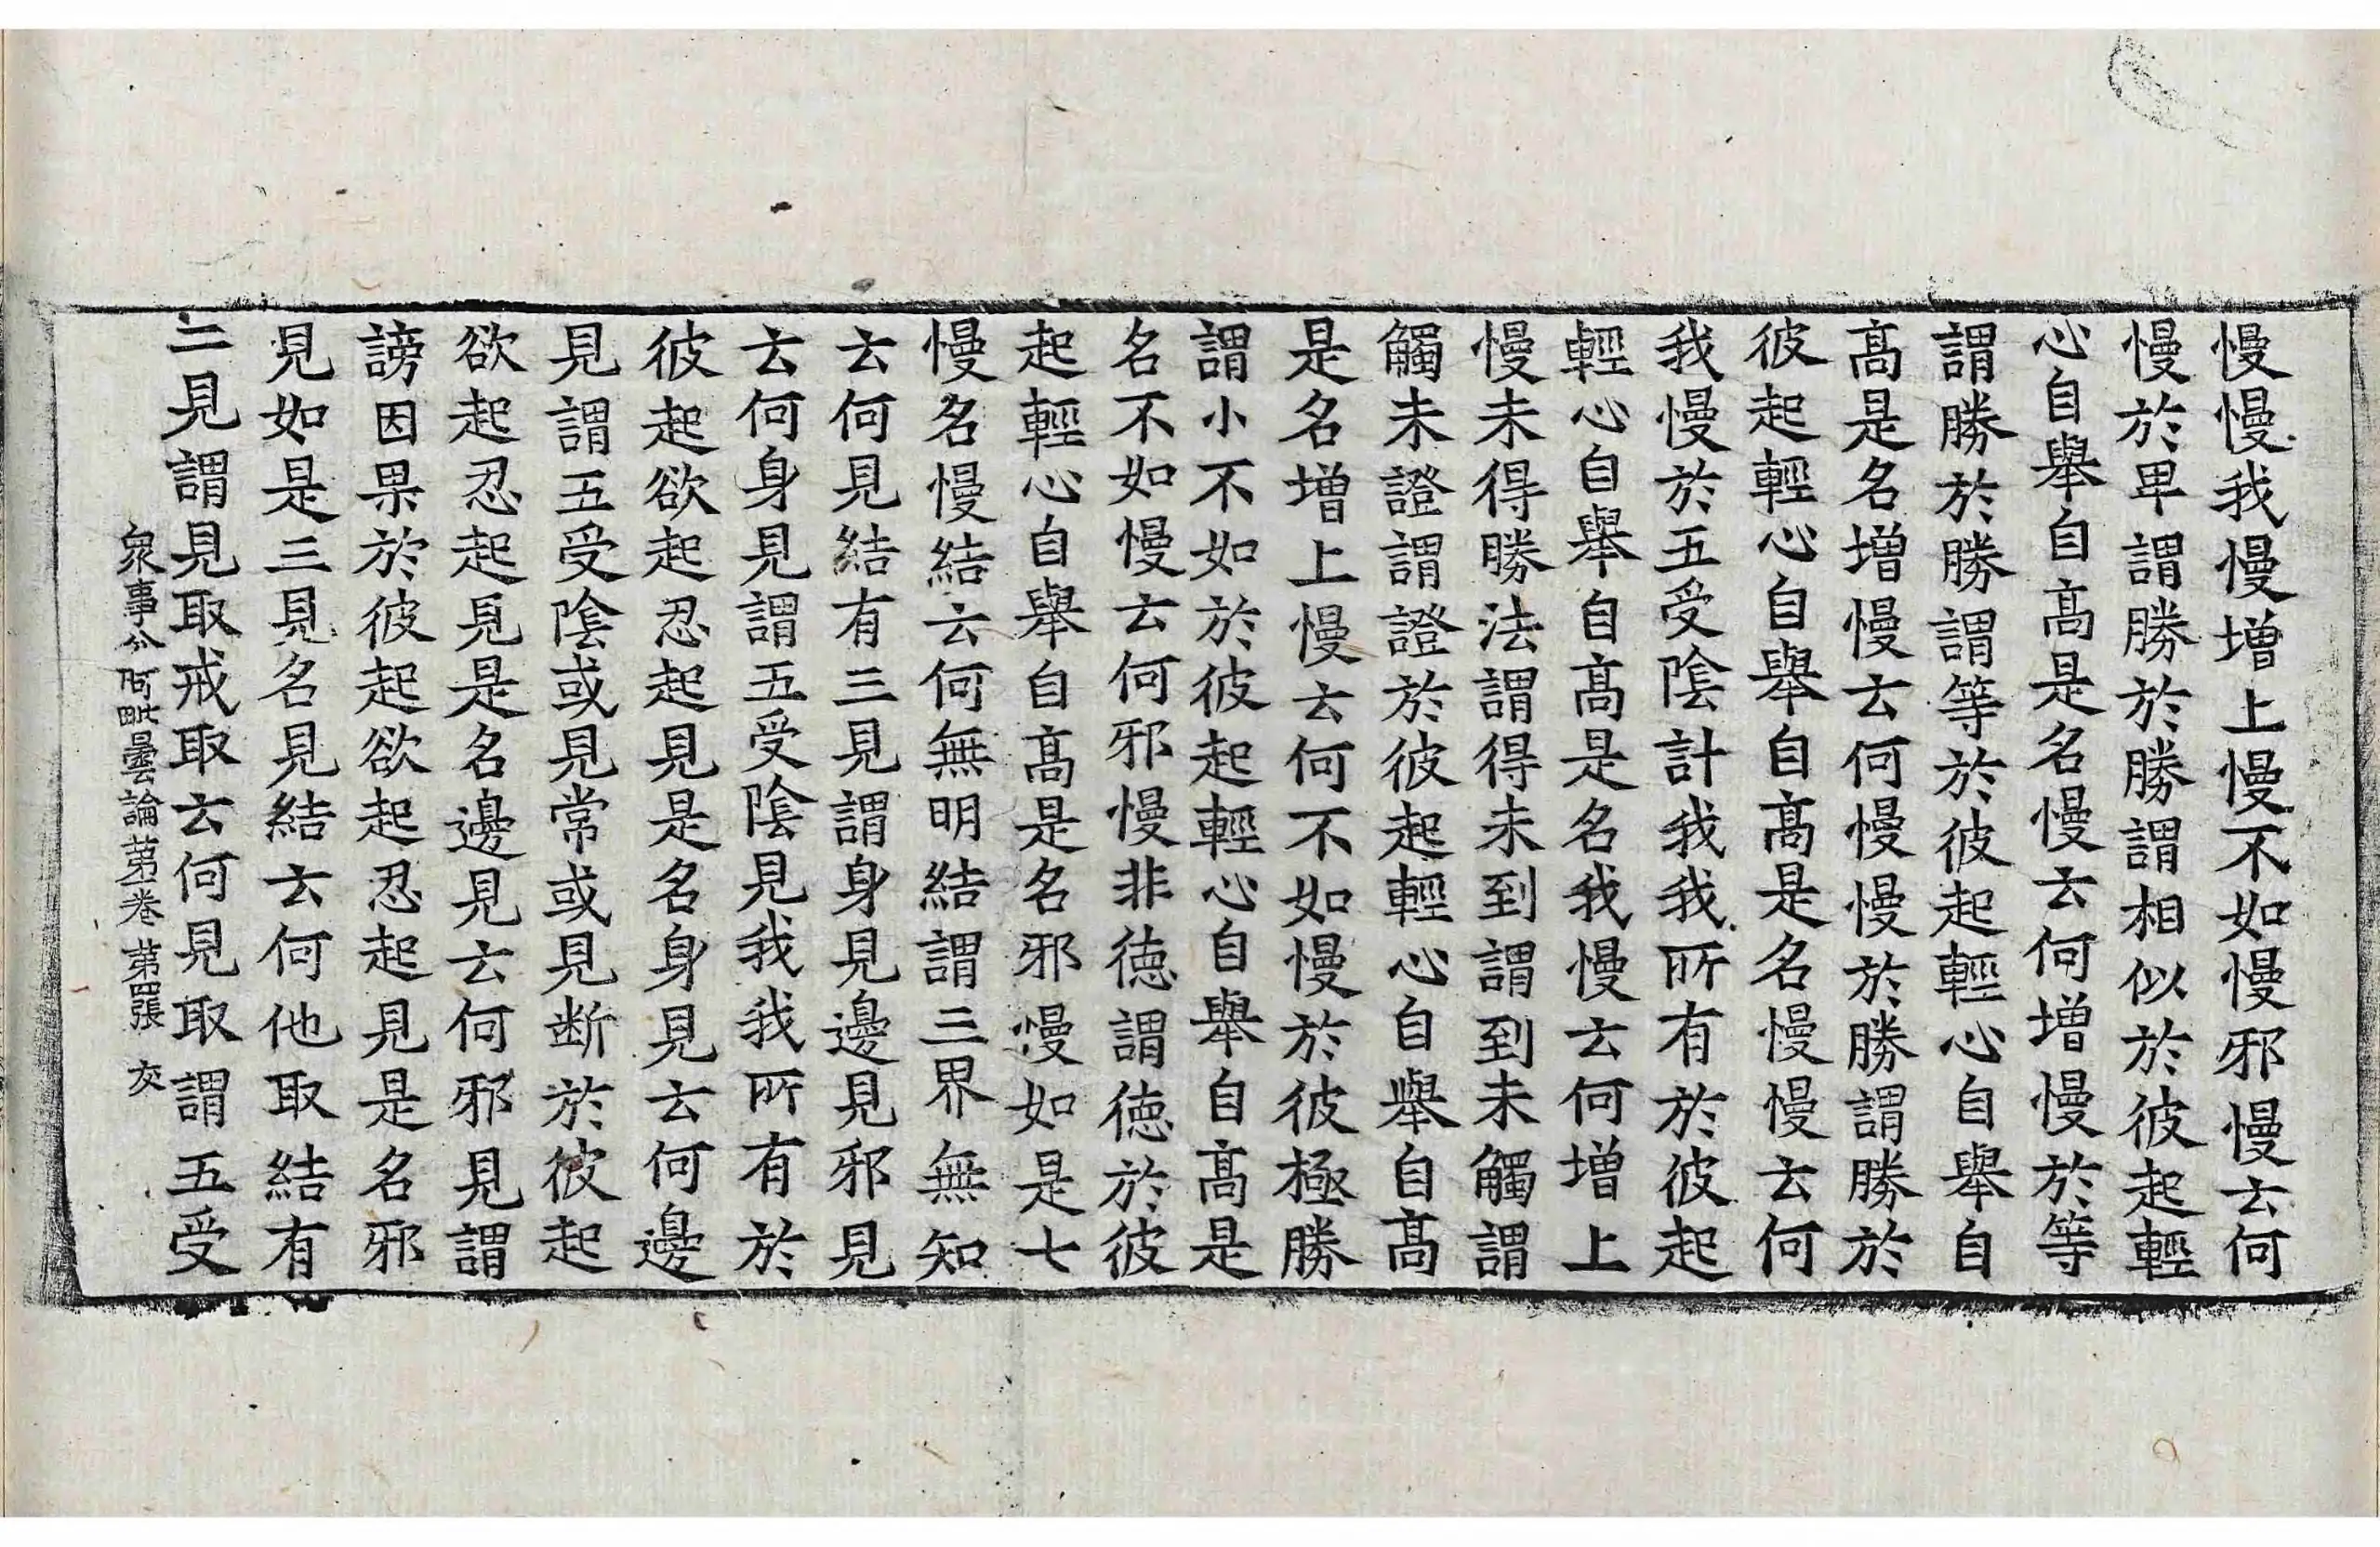 慢慢我慢增上慢不如慢邪慢云何
慢於卑謂勝於勝謂相似於彼起輕
心自舉自髙是名慢云何增慢於等
謂勝於勝謂等於彼起輕心自舉自
髙是名增慢云何慢慢於勝謂勝於
彼起輕心自舉自髙是名慢慢云何
我慢於五受陰計我我所有於彼起
輕心自舉自髙是名我慢云何增上
慢未得勝法謂得未到謂到未觸謂
觸未證謂證於彼起輕心自舉自髙
是名增上慢云何不如慢於彼極勝
謂小不如於彼起輕心自舉自髙是
名不如慢云何邪慢非德謂德於彼
起輕心自舉自髙是名邪慢如是七
慢名慢結云何無明結謂三界無知
云何見結有三見謂身見邊見邪見
云何身見謂五受陰見我我所有於
彼起欲起忍起見是名身見云何邊
見謂五受陰或見常或見断於彼起
欲起忍起見是名邊見云何邪見謂
謗因果於彼起欲起忍起見是名邪
見如是三見名見結云何他取結有
二見謂見取戒取云何見取謂五受
衆事分阿毗曇論苐一卷 苐四張 交